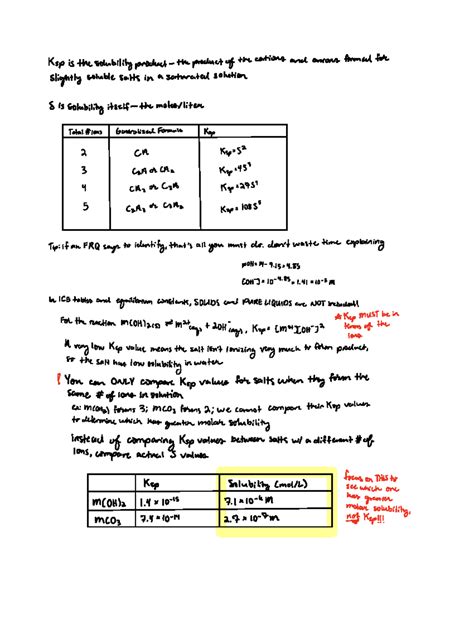 Ksp is the solubility product - the product of the cations and anions formed for
slightly soluble salts in a saturated solution
S is solubility itself - the moles/liter
Total # ions Generalized Formula Ksp
2 CA Ksp = S²
3 C₂A or CA₂ Ksp = 4S³
4 CA₃ or C₃A Ksp = 27S⁴
5 C₂A₃ or C₃A₂ Ksp = 108S⁵
Tip: if an FRQ says to identify, that's all you must do. don't waste time explaining
pOH = 14 - 9.15 = 4.85
[OH⁻] = 10^-4.85 = 1.41 × 10⁻⁵ M
In ICE tables and equilibrium constants, SOLIDS and PURE LIQUIDS are NOT included!
For the reaction M(OH)₂(s) ⇌ M²⁺(aq) + 2OH⁻(aq), Ksp = [M²⁺][OH⁻]²
* Ksp MUST be in
terms of the
ions
A very low Ksp value means the salt isn't ionizing very much to form product,
so the salt has low solubility in water
! You can ONLY compare Ksp values for salts when they form the
same # of ions in solution
ex: M(OH)₂ forms 3; MCO₃ forms 2; we cannot compare their Ksp values
to determine which has greater molar solubility
instead of comparing Ksp values between salts w/ a different # of
ions, compare actual S values
Ksp Solubility (mol/L)
M(OH)₂ 1.4 × 10⁻¹⁵ 7.1 × 10⁻⁶ M
MCO₃ 7.4 × 10⁻¹⁴ 2.7 × 10⁻⁷ M
focus on THIS to
see which one
has greater
molar solubility,
not Ksp!!!